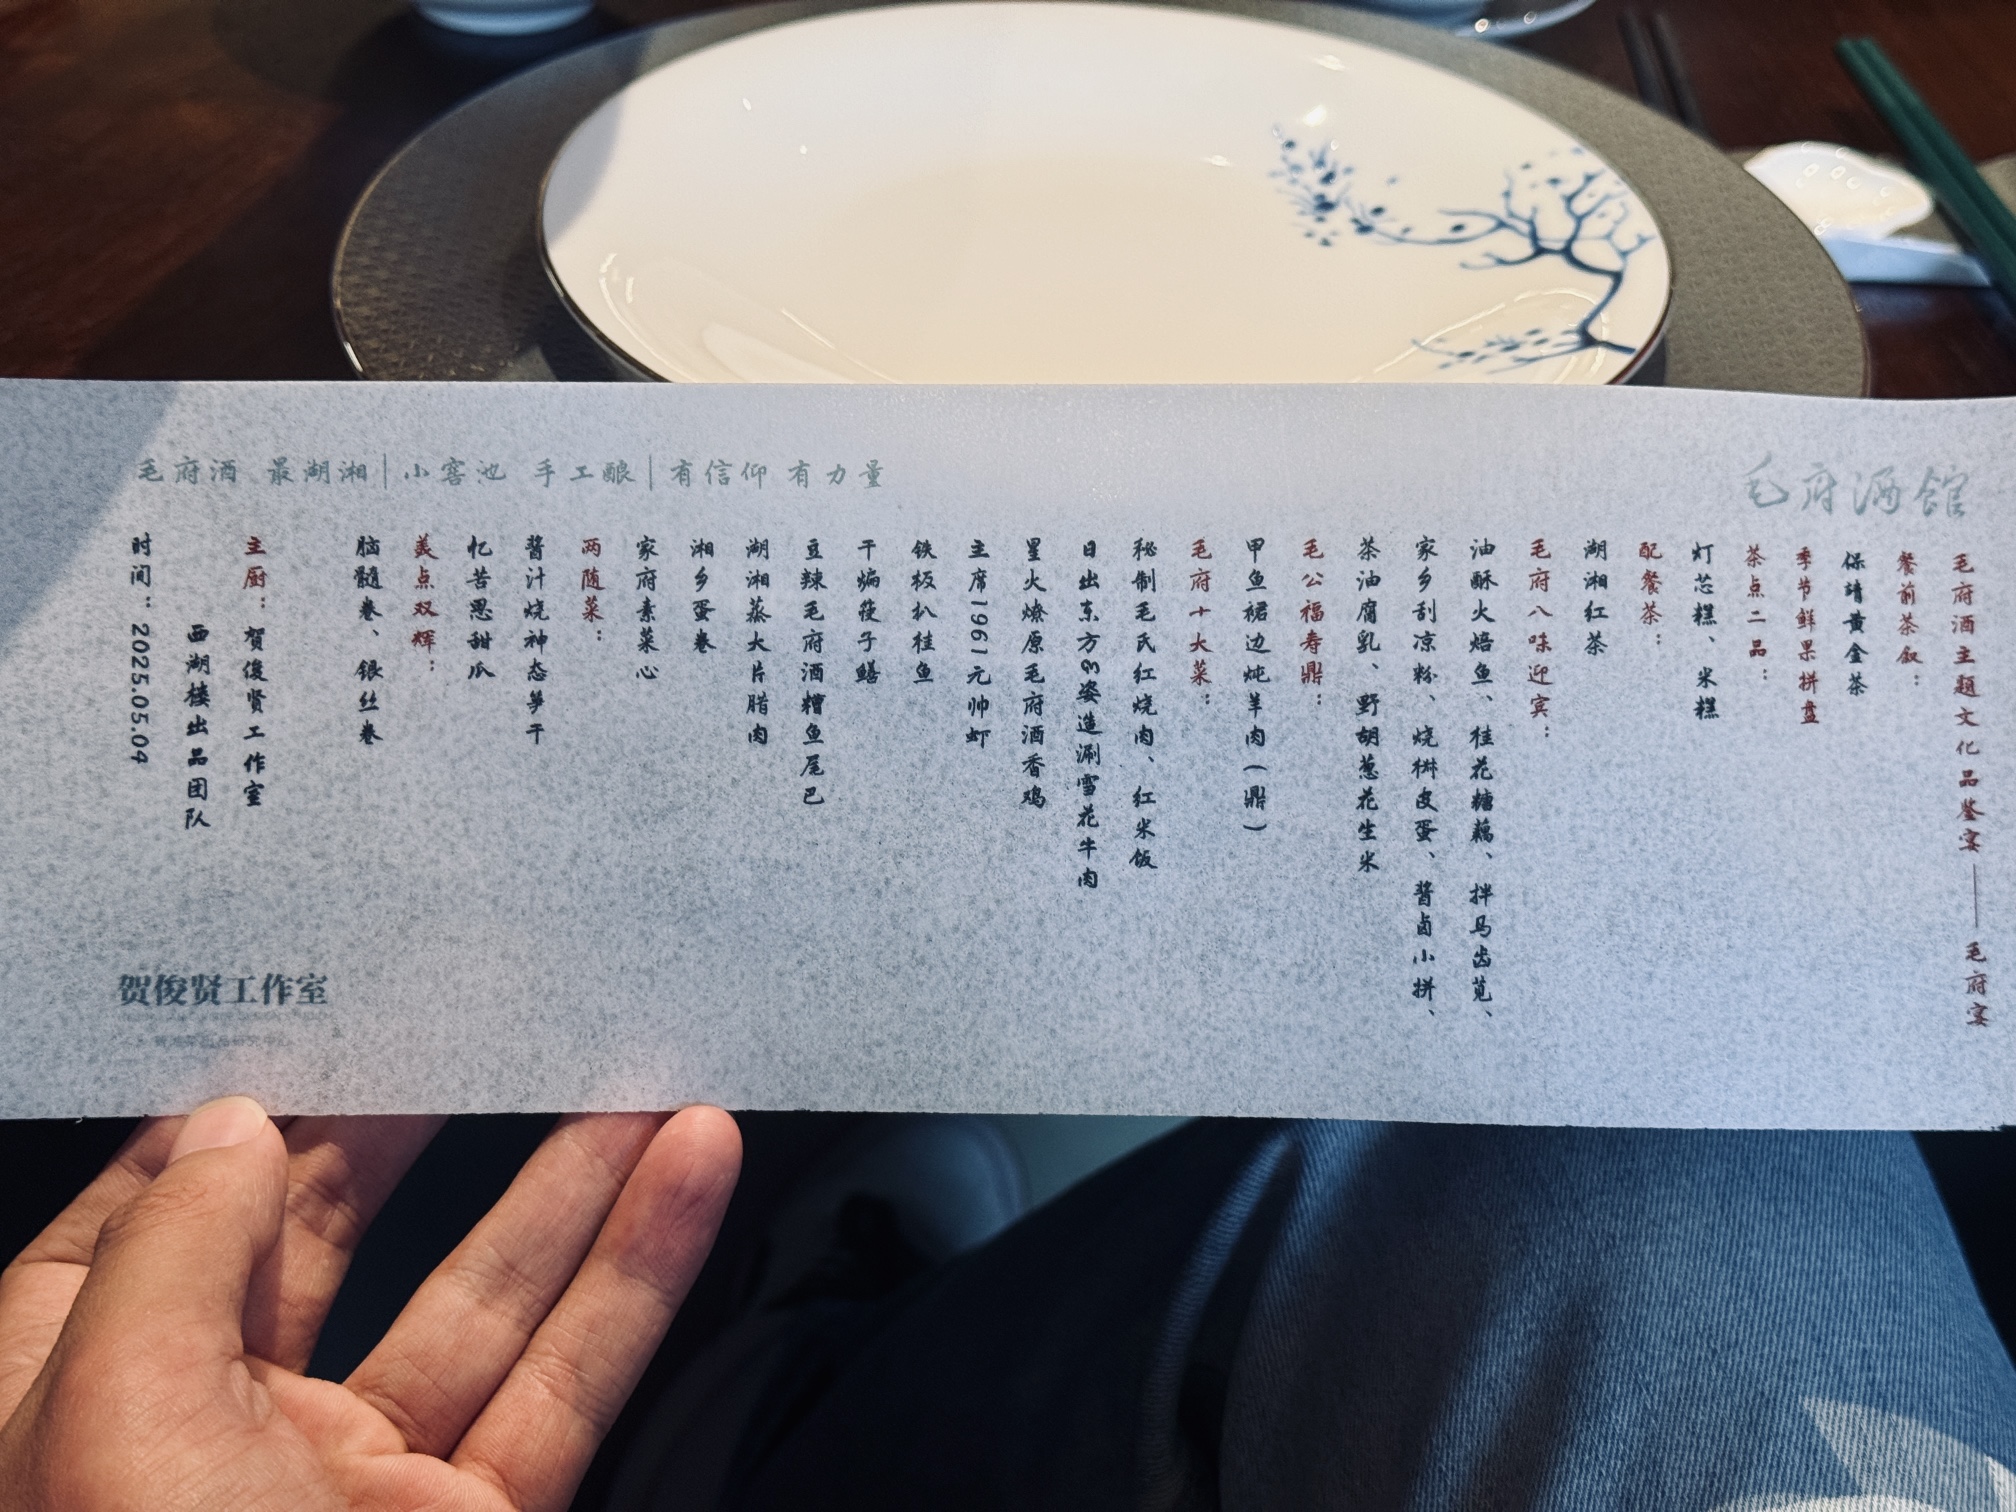 毛府酒馆
毛府酒 最湖湘|小窖池 手工酿|有信仰 有力量
毛府酒主题文化品鉴宴——毛府宴
餐前茶叙：
保靖黄金茶
季节鲜果拼盘
茶点二品：
灯芯糕、米糕
配餐茶：
湖湘红茶
毛府八味迎宾：
油酥火焙鱼、桂花糖藕、拌马齿苋、
家乡刮凉粉、烧椒皮蛋、酱卤小拼、
茶油腐乳、野胡葱花生米
毛公福寿鼎：
甲鱼裙边炖羊肉（鼎）
毛府十大菜：
秘制毛氏红烧肉、红米饭
日出东方的姿造涮雪花牛肉
星火燎原毛府酒香鸡
主席1961元帅虾
铁板扒桂鱼
干煸筷子鳝
豆辣毛府酒糟鱼尾巴
湖湘蒸大片腊肉
湘乡蛋卷
家府素菜心
两随菜：
酱汁烧神态笋干
忆苦思甜瓜
美点双辉：
脑髓卷、银丝卷
主厨：贺俊贤工作室
西湖楼出品团队
时间：2025.05.04
贺俊贤工作室